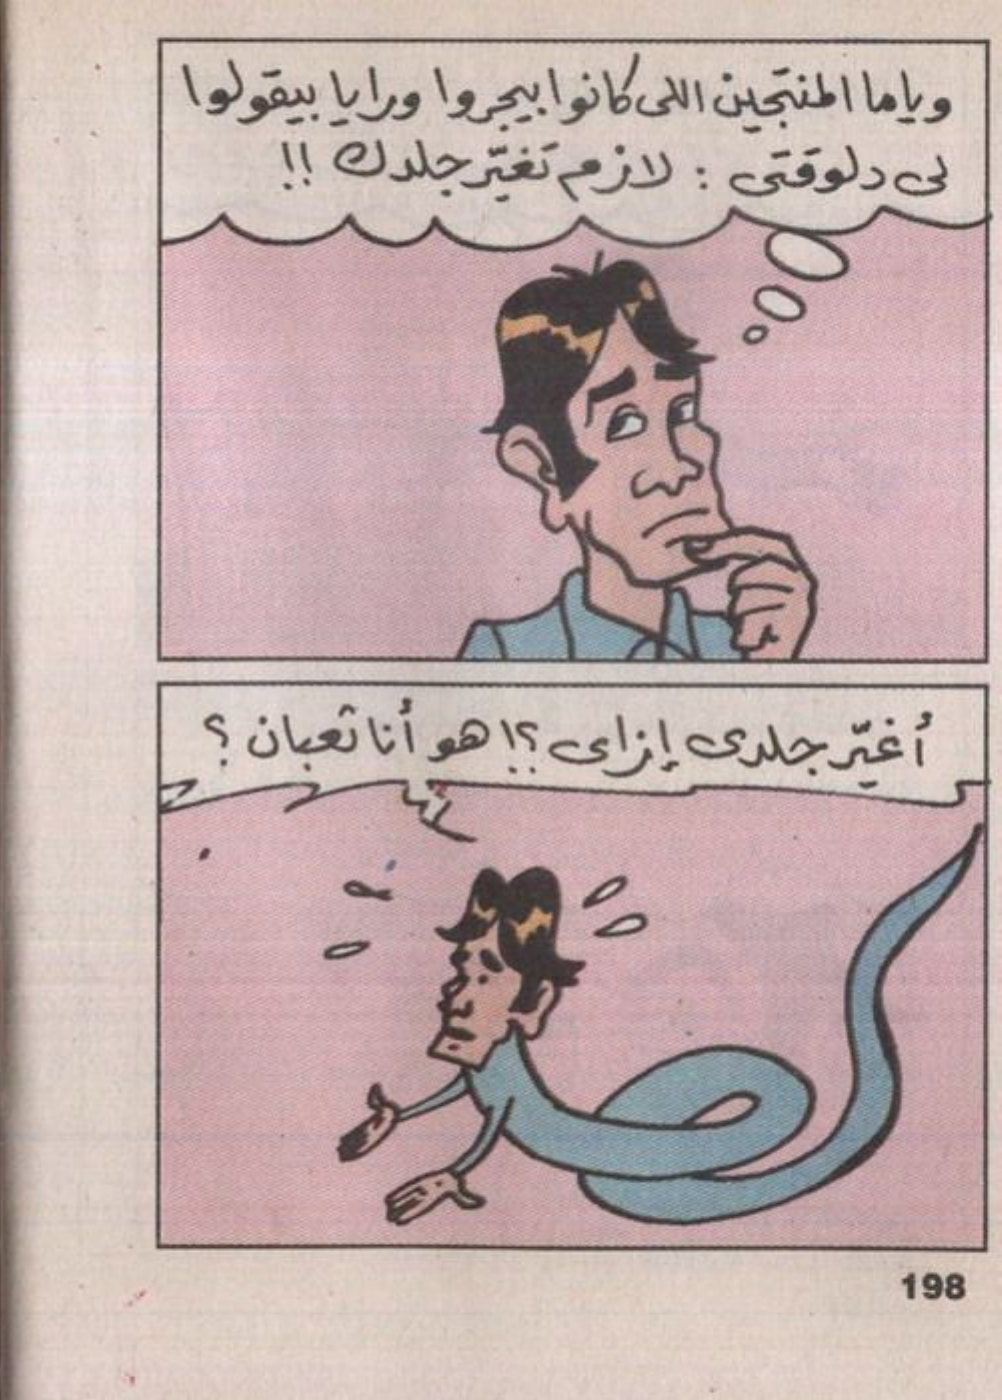 وياما المنتجين اللى كانوا بيجروا ورايا بيقولوا
لى دلوقتى : لازم تغيّر جلدك !!
أغيّر جلدى إزاى ؟! هو أنا تعبان ؟
198